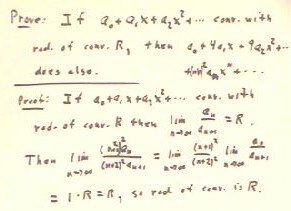 Prove: If a₀+a₁x+a₂x²+⋯ conv. with
rad. of conv. R, then a₀+4a₁x+9a₂x²+⋯
does also. +(n+1)²aₙxⁿ+⋯
Proof: If a₀+a₁x+a₂x²+⋯ conv. with
rad. of conv. R then lim n→∞ aₙ/aₙ₊₁ = R.
Then lim n→∞ (n+1)²aₙ/(n+2)²aₙ₊₁ = lim n→∞ (n+1)²/(n+2)² lim n→∞ aₙ/aₙ₊₁
= 1·R = R, so rad of conv. is R.